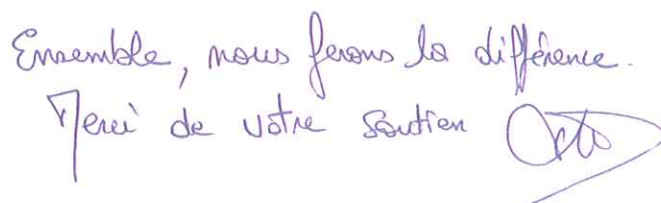 Ensemble, nous ferons la différence.
Merci de votre soutien